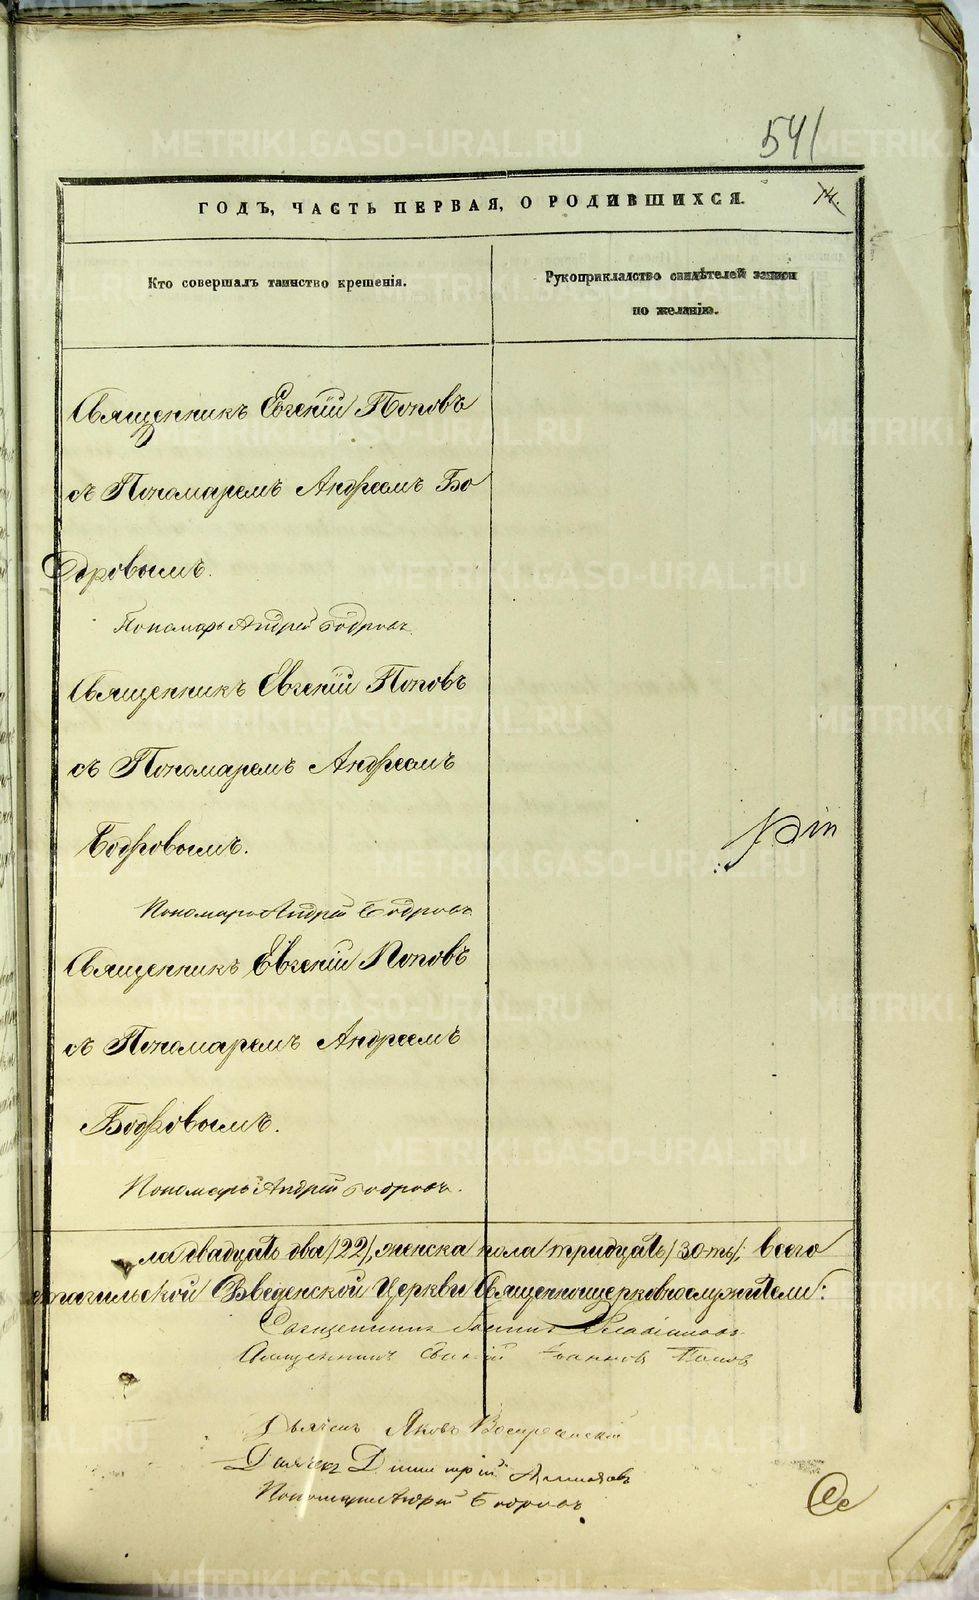 541
ГОДЪ, ЧАСТЬ ПЕРВАЯ, О РОДИВШИХСЯ.
14.
Кто совершалъ таинство крещенія.
Рукоприкладство свидѣтелей записи
по желанію.
Священникъ Евгеній Поповъ
съ Пономаремъ Андреемъ Бо
дровымъ.
Пономарь Андрей Бодровъ
Священникъ Евгеній Поповъ
съ Пономаремъ Андреемъ
Бодровымъ.
Пономарь Андрей Бодровъ
Священникъ Евгеній Поповъ
съ Пономаремъ Андреемъ
Бодровымъ.
Пономарь Андрей Бодровъ.
ла двадцать два /22/, женска пола тридцать /30-ть/; всего
Введенской Церкви Священноцерковнослужители:
Священникъ
Священникъ Евгеній Іоанновъ Поповъ
Дьячекъ Яковъ Воскресенскій
Дьячекъ Димитрій
Пономарь Андрей Бодровъ
METRIKI.GASO-URAL.RU